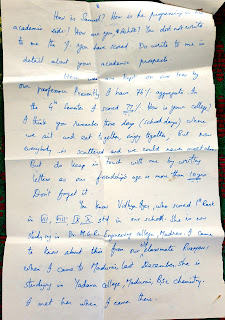 How is Pramod? How is he progressing in
academic side? How are you? You did not write
to me the % you have scored. Do write to me in
detail about your academic prospects.
our professors. Presently I have 76% aggregate. In
the 4th Semester I scored %. How is your college?
I think you remember those days (school days) where
we sit and eat together, enjoy together. But now
everybody is scattered and we could never meet
But do keep in touch with me by writing
letters as our friendship's age is more than 10 yrs
Don't forget it.
You know Vidhya, who scored 1st Rank
in VII, VIII, IX, X std in our school. She is now
studying in Dr. M.G.R. Engineering college, Madras. I came
to know about this from our classmate
when I came to Madurai, last December. She is
studying in Yadava college, Madurai, BSc chemistry.
I met her when I came there.